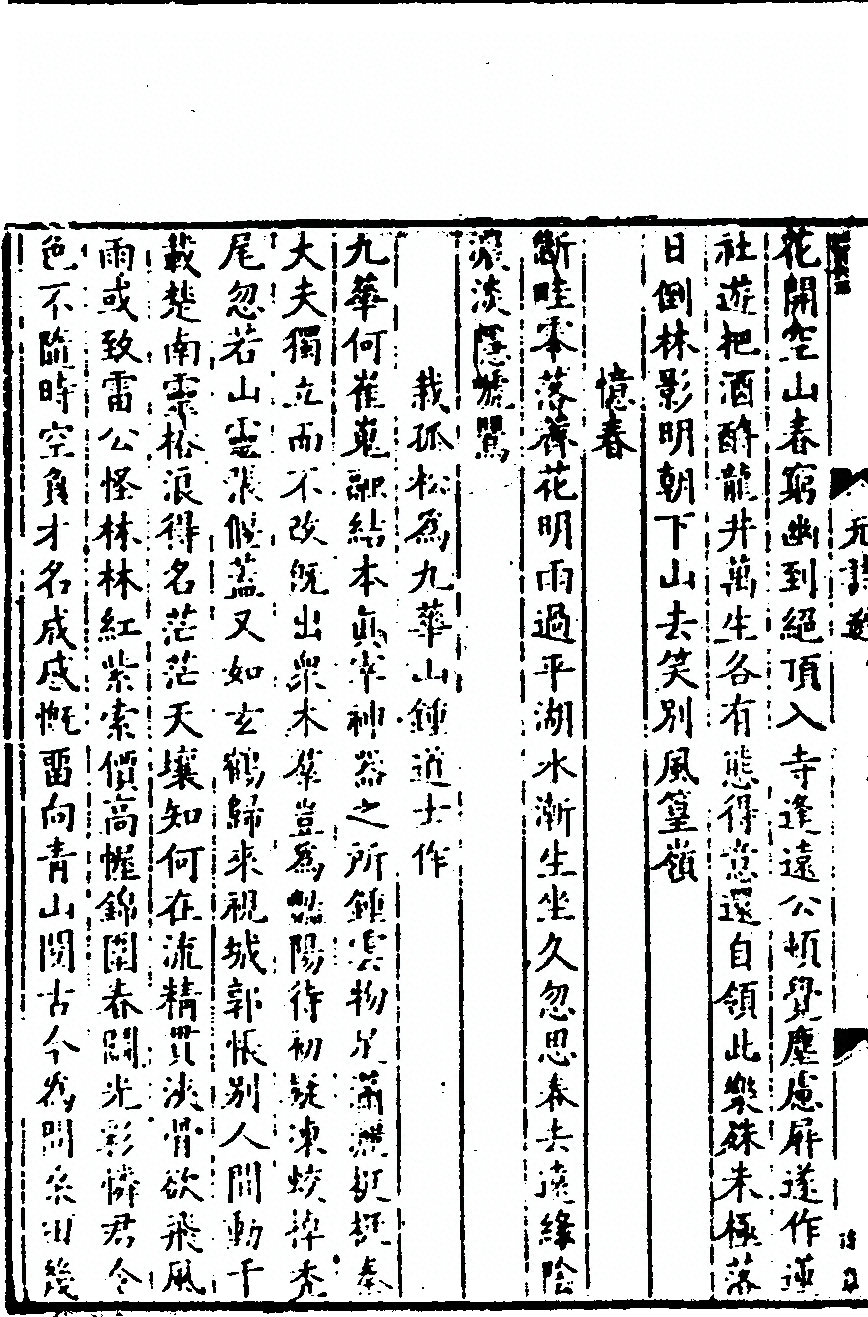 花開空山春窮幽到絕頂入寺逢遠公頓覺塵慮屏遂作蓮
社遊把酒酹龍井萬生各有態得意還自領此樂殊未極落
日倒林影明朝下山去笑別風篁嶺
憶春
斷畦零落薺花明雨過平湖水漸生坐久忽思春去遠緣陰
濃淡隱號鶯
栽孤松為九華山鍾道士作
九華何崔嵬融結本真宰神器之所鍾雲物足瀟灑挺挺秦
大夫獨立而不改旣出眾木萃豈為豔陽待初疑凍蛟掉禿
尾忽若山靈張偃蓋又如玄鶴歸來視城郭悵別人間動千
載楚南靈裕浪得名茫茫天壤知何在流精貫浹骨欲飛風
雨或致雷公怪林林紅紫索價高幄錦圍春鬬光彩憐君令
色不隨時空負才名成感慨畱向青山閱古今為問桑田幾
元詩選